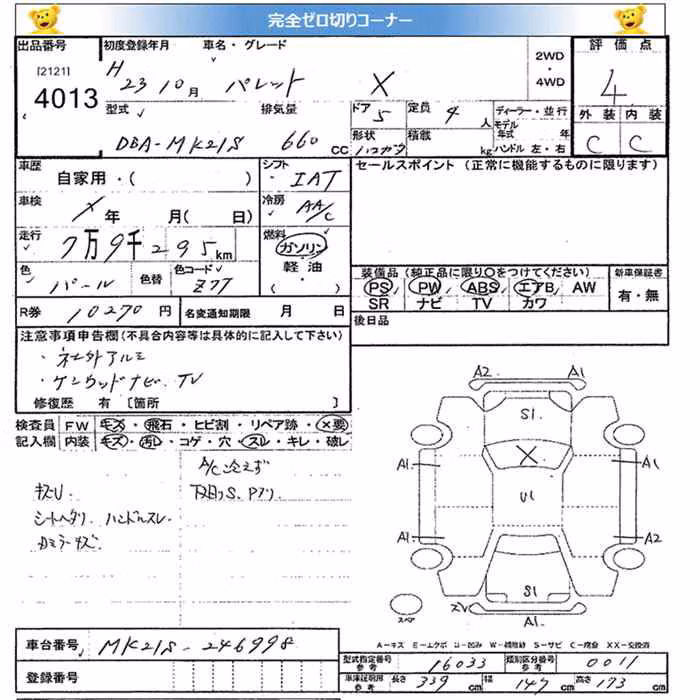 完全ゼロ切りコーナー
出品番号
[2121]
4013
初度登録年月 車名・グレード
H 23 10月 パレット X
2WD
・
4WD
評価点
4
外装 内装
C C
型式 排気量
DBA-MK21S 660 CC
ドア 5 定員 4 人
形状 積載 kg
ハコバン
ディーラー・並行
モデル年式 年
ハンドル 左・右
車歴
自家用・( )
シフト
IAT
車検
X 年 月( 日)
冷房
AA/C
走行
7万9千295km
燃料
ガソリン
軽油
・( )
色 パール 色替 色コード Z7T
R券 10270円 名変通知期限 月 日
セールスポイント (正常に機能するものに限ります)
装備品(純正品に限り○をつけてください)
PS PW ABS エアB AW
SR ナビ TV カワ
新車保証書
有・無
後日品
注意事項申告欄(不具合内容等は具体的に記入して下さい)
・社外アルミ
・ケンウッドナビ. TV
修復歴 有 〔箇所 〕
検査員 FW キズ・飛石・ヒビ割・リペア跡・×要
記入欄 内装 キズ・汚レ・コゲ・穴・スレ・キレ・破レ
A/C冷えず
キズU.
下廻りS、Pアリ
シートヘタリ ハンドルスレ
カミラーキズ.
A2 A1
S1
X
A1 A1
U1
A1 A2
S1
スペア
A1
A-キズ E-エクボ U-凹み W-補修跡 S-サビ C-腐食 XX-交換済
車台番号 MK21S-246998
登録番号
型式指定番号 参考 16033 類別区分番号 参考 0011
車庫証明用 参考 長さ 339 cm 幅 147 cm 高さ 173 cm